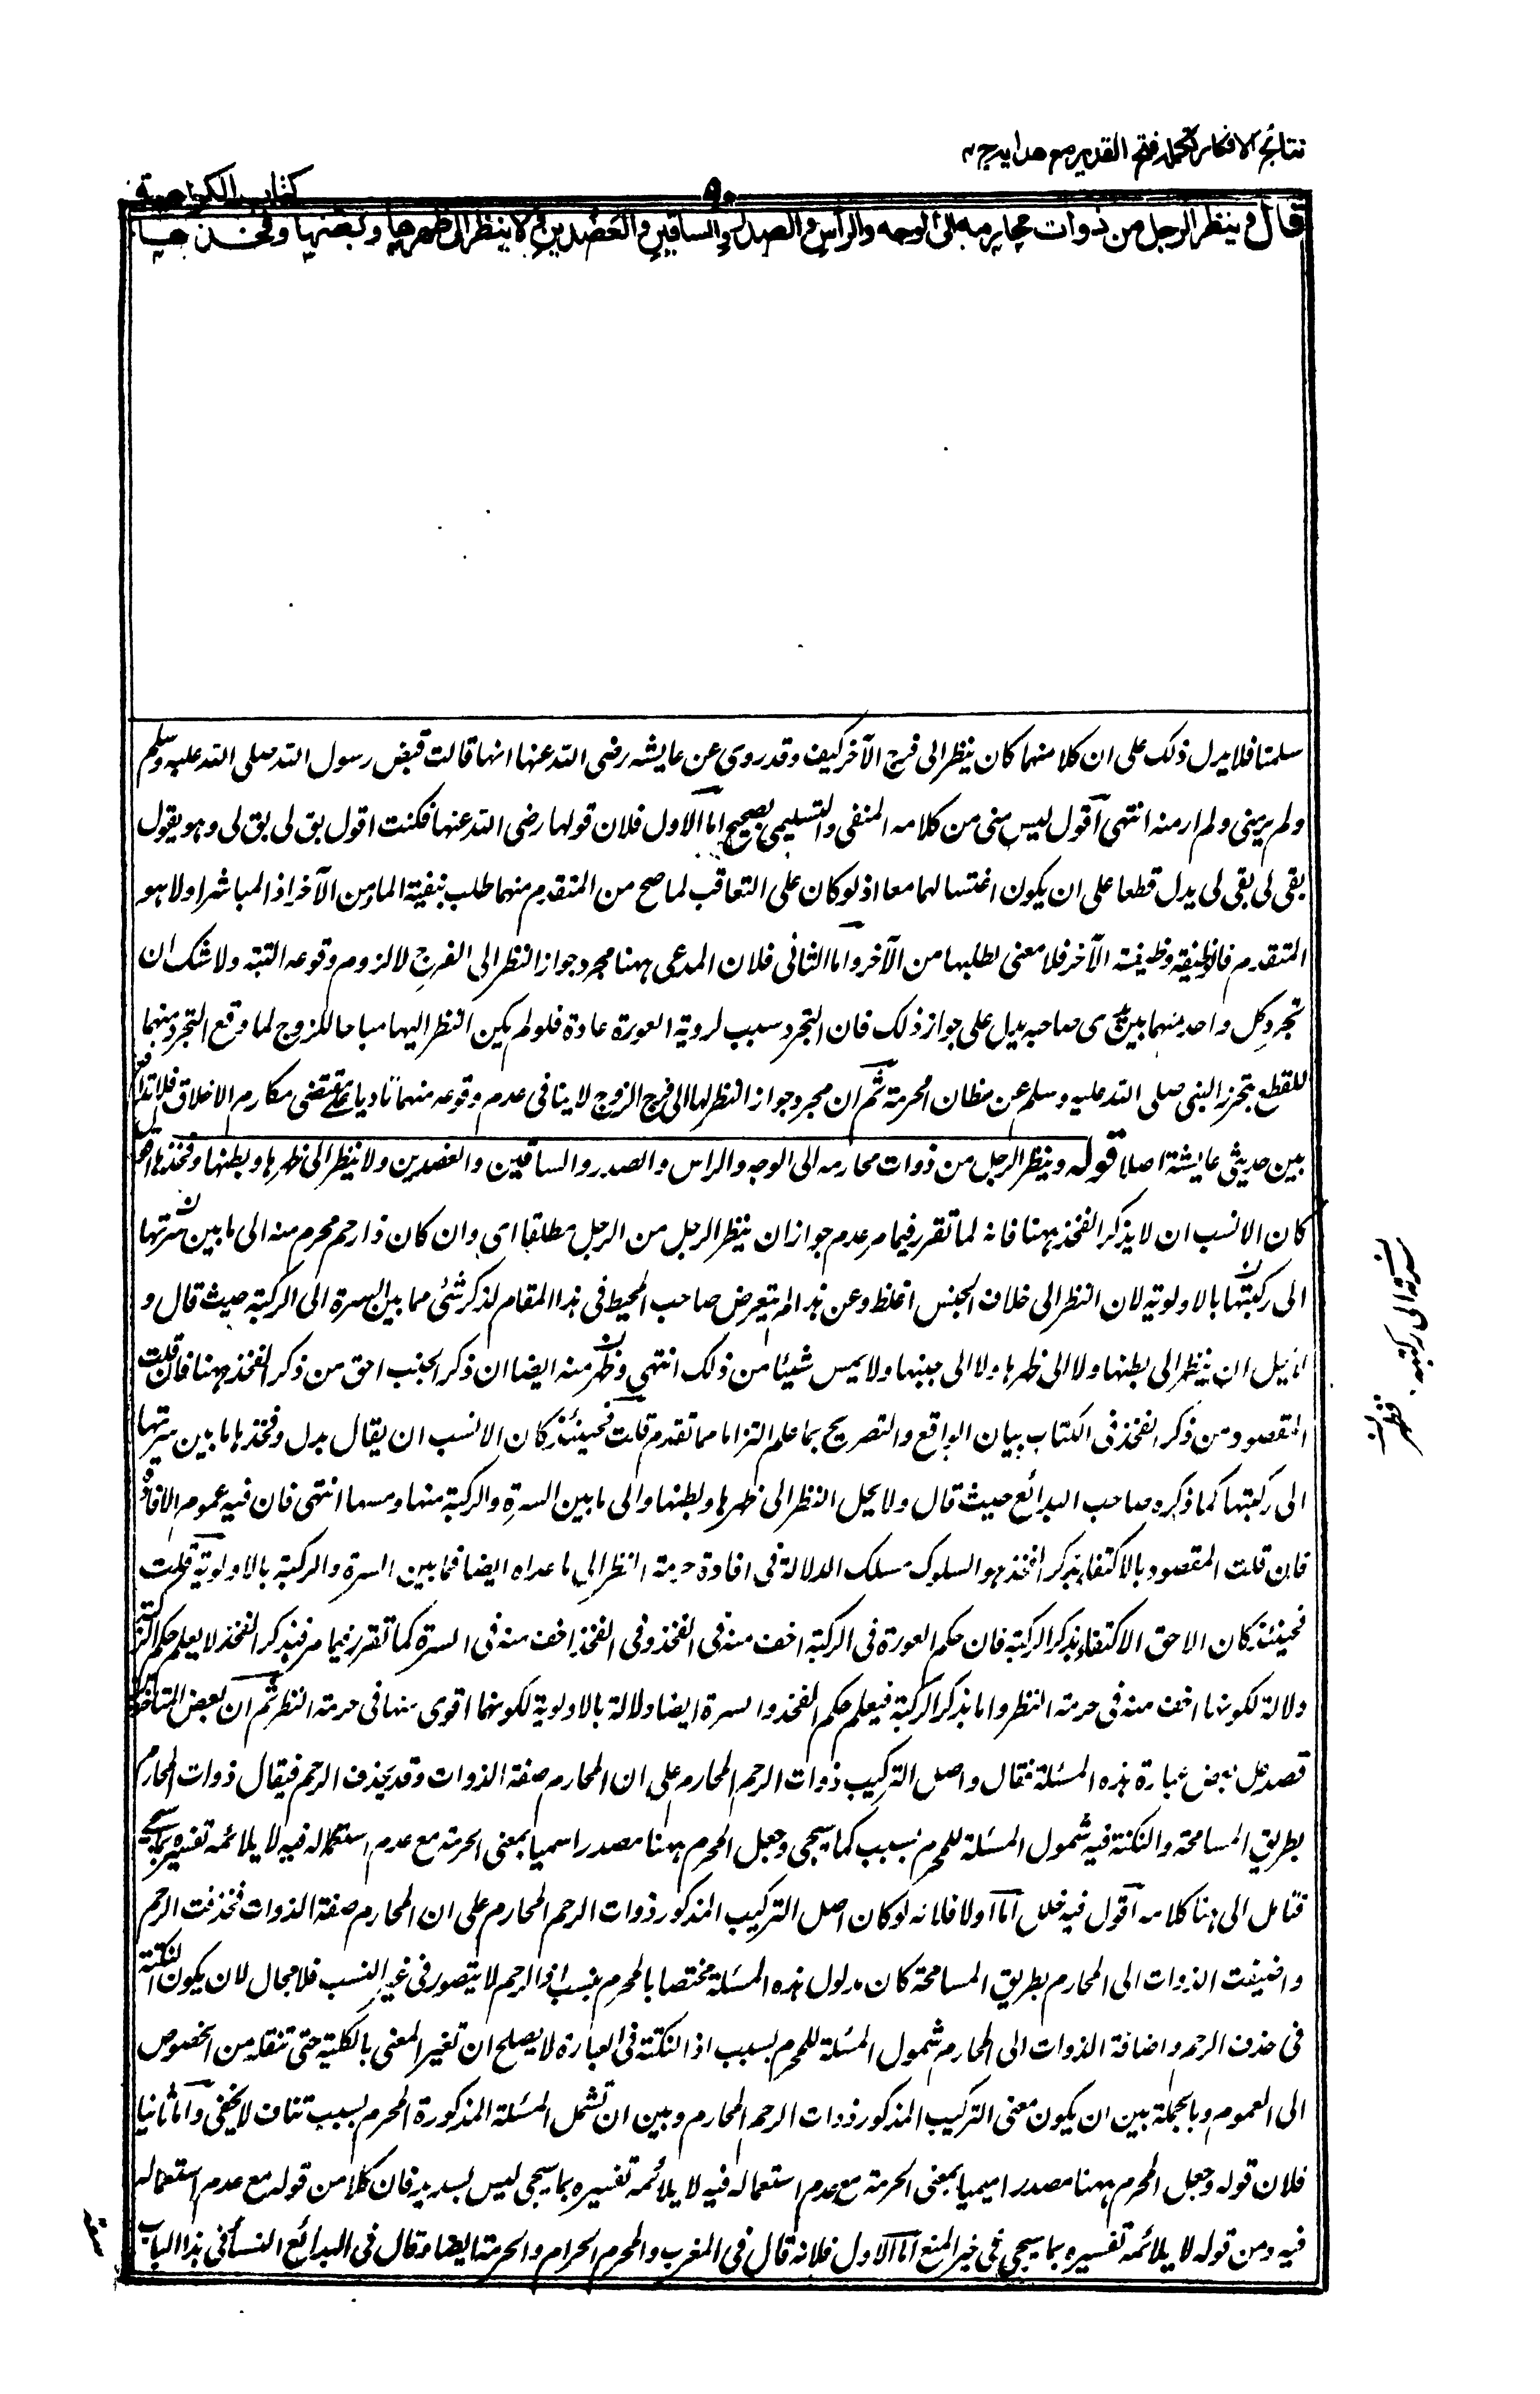 نتائج الافكار تكملہ فتح القدير مع هدايہ ج ٤
٩٠
كتاب الكراهية
قال وينظر الرجل من ذوات محارمه الى الوجه والرأس والصدر والساقين والعضدين ولا ينظر الى ظهرها وبطنها وفخذها
سلمنا فلا يدل ذلك على ان كلا منهما كان ينظر الى فرج الآخر كيف وقد روى عن عايشه رضى الله عنها انها قالت قبض رسول الله صلى الله عليه وسلم
ولم يرمنى ولم ار منه انتهى اقول ليس شئ من كلامه المنفى والتسليمى بصحيح اما الاول فلان قولها رضى الله عنها فكنت اقول بق لى بق لى وهو يقول
بقى لى بقى لى يدل قطعا على ان يكون اغتسالهما معا اذ لو كان على التعاقب لما صح من المتقدم منهما طلب بقية الماء من الآخر اذ المباشر اولا هو
المتقدم فالبقية وظيفة الآخر فلا معنى لطلبها من الآخر واما الثانى فلان المدعى ههنا مجرد جواز النظر الى الفرج لا لزوم وقوعه البتة ولا شك ان
تجرد كل واحد منهما بين يدى صاحبه يدل على جواز ذلك فان التجرد سبب لروية العورة عادة فلو لم يكن النظر اليها مباحا للزوج لما وقع التجرد منهما
للقطع بتحرز النبى صلى الله عليه وسلم عن مظان الحرمة ثم ان مجرد جواز النظر لها الى فرج الزوج لا ينافى عدم وقوعه منهما تاديا على مقتضى مكارم الاخلاق فلا تدافع
بين حديثى عايشة اصلا قوله وينظر الرجل من ذوات محارمه الى الوجه والراس والصدر والساقين والعضدين ولا ينظر الى ظهرها وبطنها وفخذها اقول
كان الانسب ان لا يذكر الفخذ ههنا فانه لما تقرر فيما مر عدم جواز ان ينظر الرجل من الرجل مطلقا اى وان كان ذا رحم محرم منه الى ما بين سرتها
الى ركبتها بالاولوية لان النظر الى خلاف الجنس اغلظ وعن هذا لم يتعرض صاحب المحيط فى هذا المقام لذكر شئ مما بين السرة الى الركبة حيث قال و
لا يحل ان ينظر الى بطنها ولا الى ظهرها ولا الى جنبها ولا يمس شيئا من ذلك انتهى وظهر منه ايضا ان ذكر الجنب احق من ذكر الفخذ ههنا فان قلت
المقصود من ذكر الفخذ فى الكتاب بيان الواقع والتصريح بما علم التزاما مما تقدم قلت فحينئذ كان الانسب ان يقال بدل وفخذها ما بين سرتها
الى ركبتها كما ذكره صاحب البدائع حيث قال ولا يحل النظر الى ظهرها وبطنها والى ما بين السرة والركبة منها ومسها انتهى فان فيه عموم الافادة
فان قلت المقصود بالاكتفاء بذكر الفخذ هو السلوك مسلك الدلالة فى افادة حرمة النظر الى ما عداه ايضا فما بين السرة والركبة بالاولوية قلت
فحينئذ كان الاحق الاكتفاء بذكر الركبة فان حكم العورة فى الركبة اخف منه فى الفخذ وفى الفخذ اخف منه فى السرة كما تقرر فيما مر فبذكر الفخذ لا يعلم حكم الركبة
دلالة لكونها اخف منه فى حرمة النظر واما بذكر الركبة فيعلم حكم الفخذ والسرة ايضا دلالة بالاولوية لكونهما اقوى منها فى حرمة النظر ثم ان بعض المتاخرين
قصد حل بعض عبارة هذه المسئلة فقال واصل التركيب ذوات الرحم المحارم على ان المحارم صفة الذوات وقد يحذف الرحم فيقال ذوات المحارم
بطريق المسامحة والنكتة فيه شمول المسئلة للمحرم بسبب كما سيجى وجعل المحرم ههنا مصدرا سميا بمعنى الحرمة مع عدم استعماله فيه لا يلائمه تفسيره بما سيجى
فتامل الى هنا كلامه اقول فيه خلل اما اولا فلانه لو كان اصل التركيب المذكور ذوات الرحم المحارم على ان المحارم صفة الذوات فحذفت الرحم
واضيفت الذوات الى المحارم بطريق المسامحة كان مدلول هذه المسئلة مختصا بالمحرم بنسب اذ الرحم لا يتصور فى غير النسب فلا مجال لان يكون النكتة
فى حذف الرحم واضافة الذوات الى المحارم شمول المسئلة للمحرم بسبب اذ النكتة فى العبارة لا يصلح ان تغير المعنى بالكلية حتى تنقله من الخصوص
الى العموم وبالجملة بين ان يكون معنى التركيب المذكور ذوات الرحم المحارم وبين ان تشمل المسئلة المذكورة المحرم بسبب تناف لا يخفى واما ثانيا
فلان قوله وجعل المحرم ههنا مصدرا ميميا بمعنى الحرمة مع عدم استعماله فيه لا يلائمه تفسيره بما سيجى ليس بسديد فان كلا من قوله مع عدم استعماله
فيه ومن قوله لا يلائمه تفسيره بما سيجى فى خير المنع اما الاول فلانه قال فى المغرب والمحرم الحرام والحرمة ايضا وقال فى البدائع النسأ فى هذا الباب
سرته الى ركبته